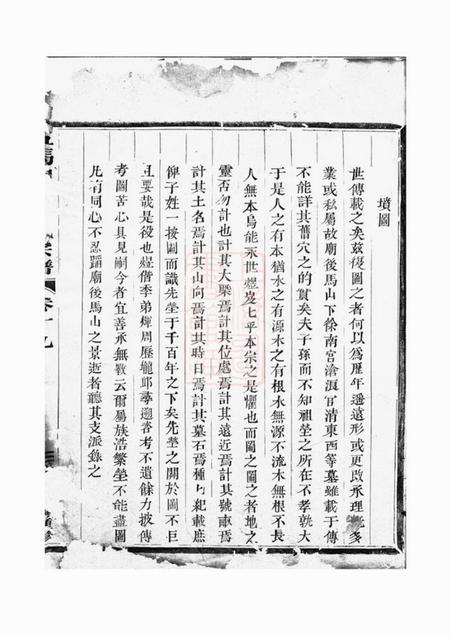 墳圖
世傳載之矣茲復圖之者何以為歷年遙遠形或更改承理多
業或私屬故廟後馬山下徐南宮滄溟官清東西等墓雖載于傳
不能詳其舊穴之的實矣夫子孫而不知祖塋之所在不孝孰大
于是人之有本猶水之有源木之有根水無源不流木無根不長
人無本烏能永世煜岌七乎本宗之是懼也而圖之圖之者地之
靈否勿計也計其大槩焉計其位處焉計其遠近焉計其號畝焉
計其土名焉計其山向焉計其時日焉計其墓石焉種七紀載庶
俾子姓一按圖而識先塋于千百年之下矣先塋之關於圖不巨
且要哉是役也煜偕季弟煇周歷壠邱尋遡耆考不遺餘力披傳
考圖苦心具見嗣今者宜善承無斁云爾屬族浩繁塋不能盡圖
凡有同心不忍蹈廟後馬山之景逝者聽其支派錄之
宗譜
卷十九